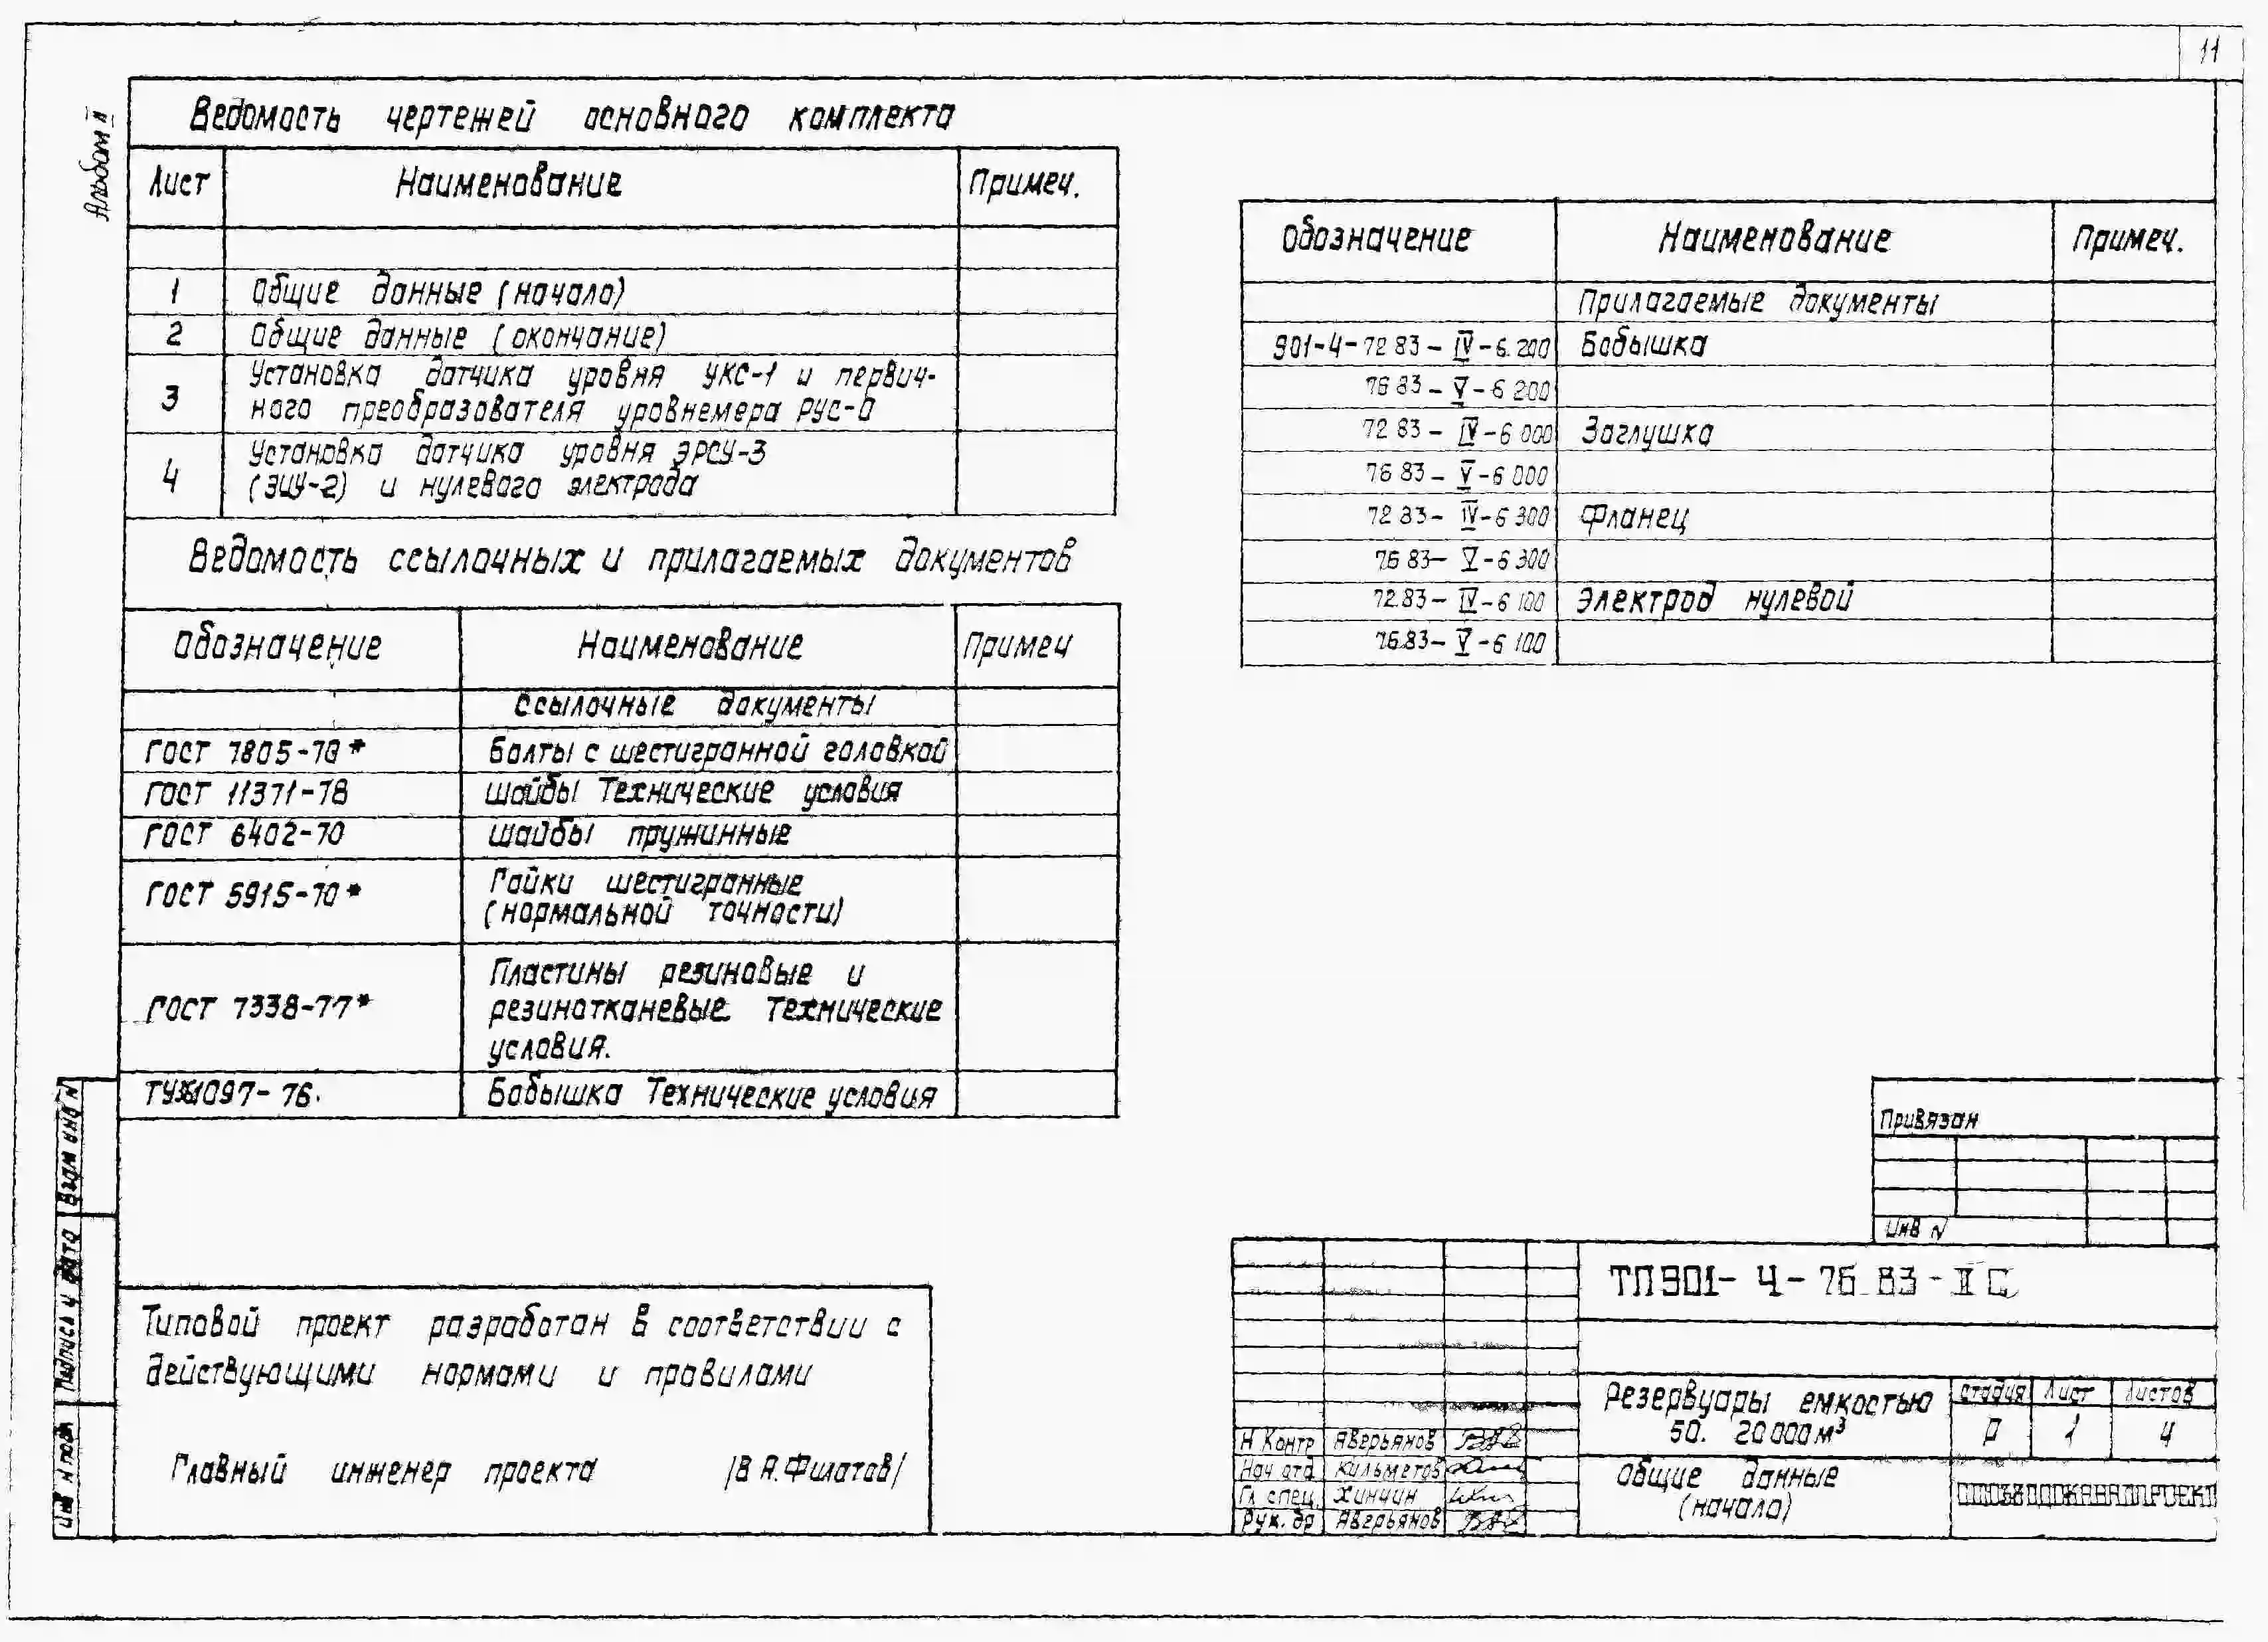 11
Альбом II
Ведомость чертежей основного комплекта
Лист Наименование Примеч.
1 Общие данные (начало)
2 Общие данные (окончание)
3 Установка датчика уровня УКС-1 и первич-
ного преобразователя уровнемера РУС-0
4 Установка датчика уровня ЭРСУ-3
(ЭИУ-2) и нулевого электрода
Ведомость ссылочных и прилагаемых документов
Обозначение Наименование Примеч
Ссылочные документы
ГОСТ 7805-70* Болты с шестигранной головкой
ГОСТ 11371-78 Шайбы Технические условия
ГОСТ 6402-70 Шайбы пружинные
ГОСТ 5915-70* Гайки шестигранные
(нормальной точности)
ГОСТ 7338-77* Пластины резиновые и
резинотканевые Технические
условия.
1097-76. Бобышка Технические условия
Обозначение Наименование Примеч.
Прилагаемые документы
901-4-72 83-IV-6.200 Бобышка
76 83-V-6 200
72 83-IV-6 000 Заглушка
76 83-V-6 000
72 83-IV-6 300 Фланец
76 83-V-6 300
72.83-IV-6 100 Электрод нулевой
76.83-V-6 100
Типовой проект разработан в соответствии с
действующими нормами и правилами
Главный инженер проекта /В А.Филатов/
Взам инв N
Подпись и дата
Инв N подл
Привязан
Инв N
ТП901-4-76.83-II С
Резервуары емкостью
50. 20000м³
Стадия Лист Листов
Р 1 4
Общие данные
(начало)
Н Контр Аверьянов
Нач отд Кильметов
Гл спец. Хинчин
Рук. бр Аверьянов